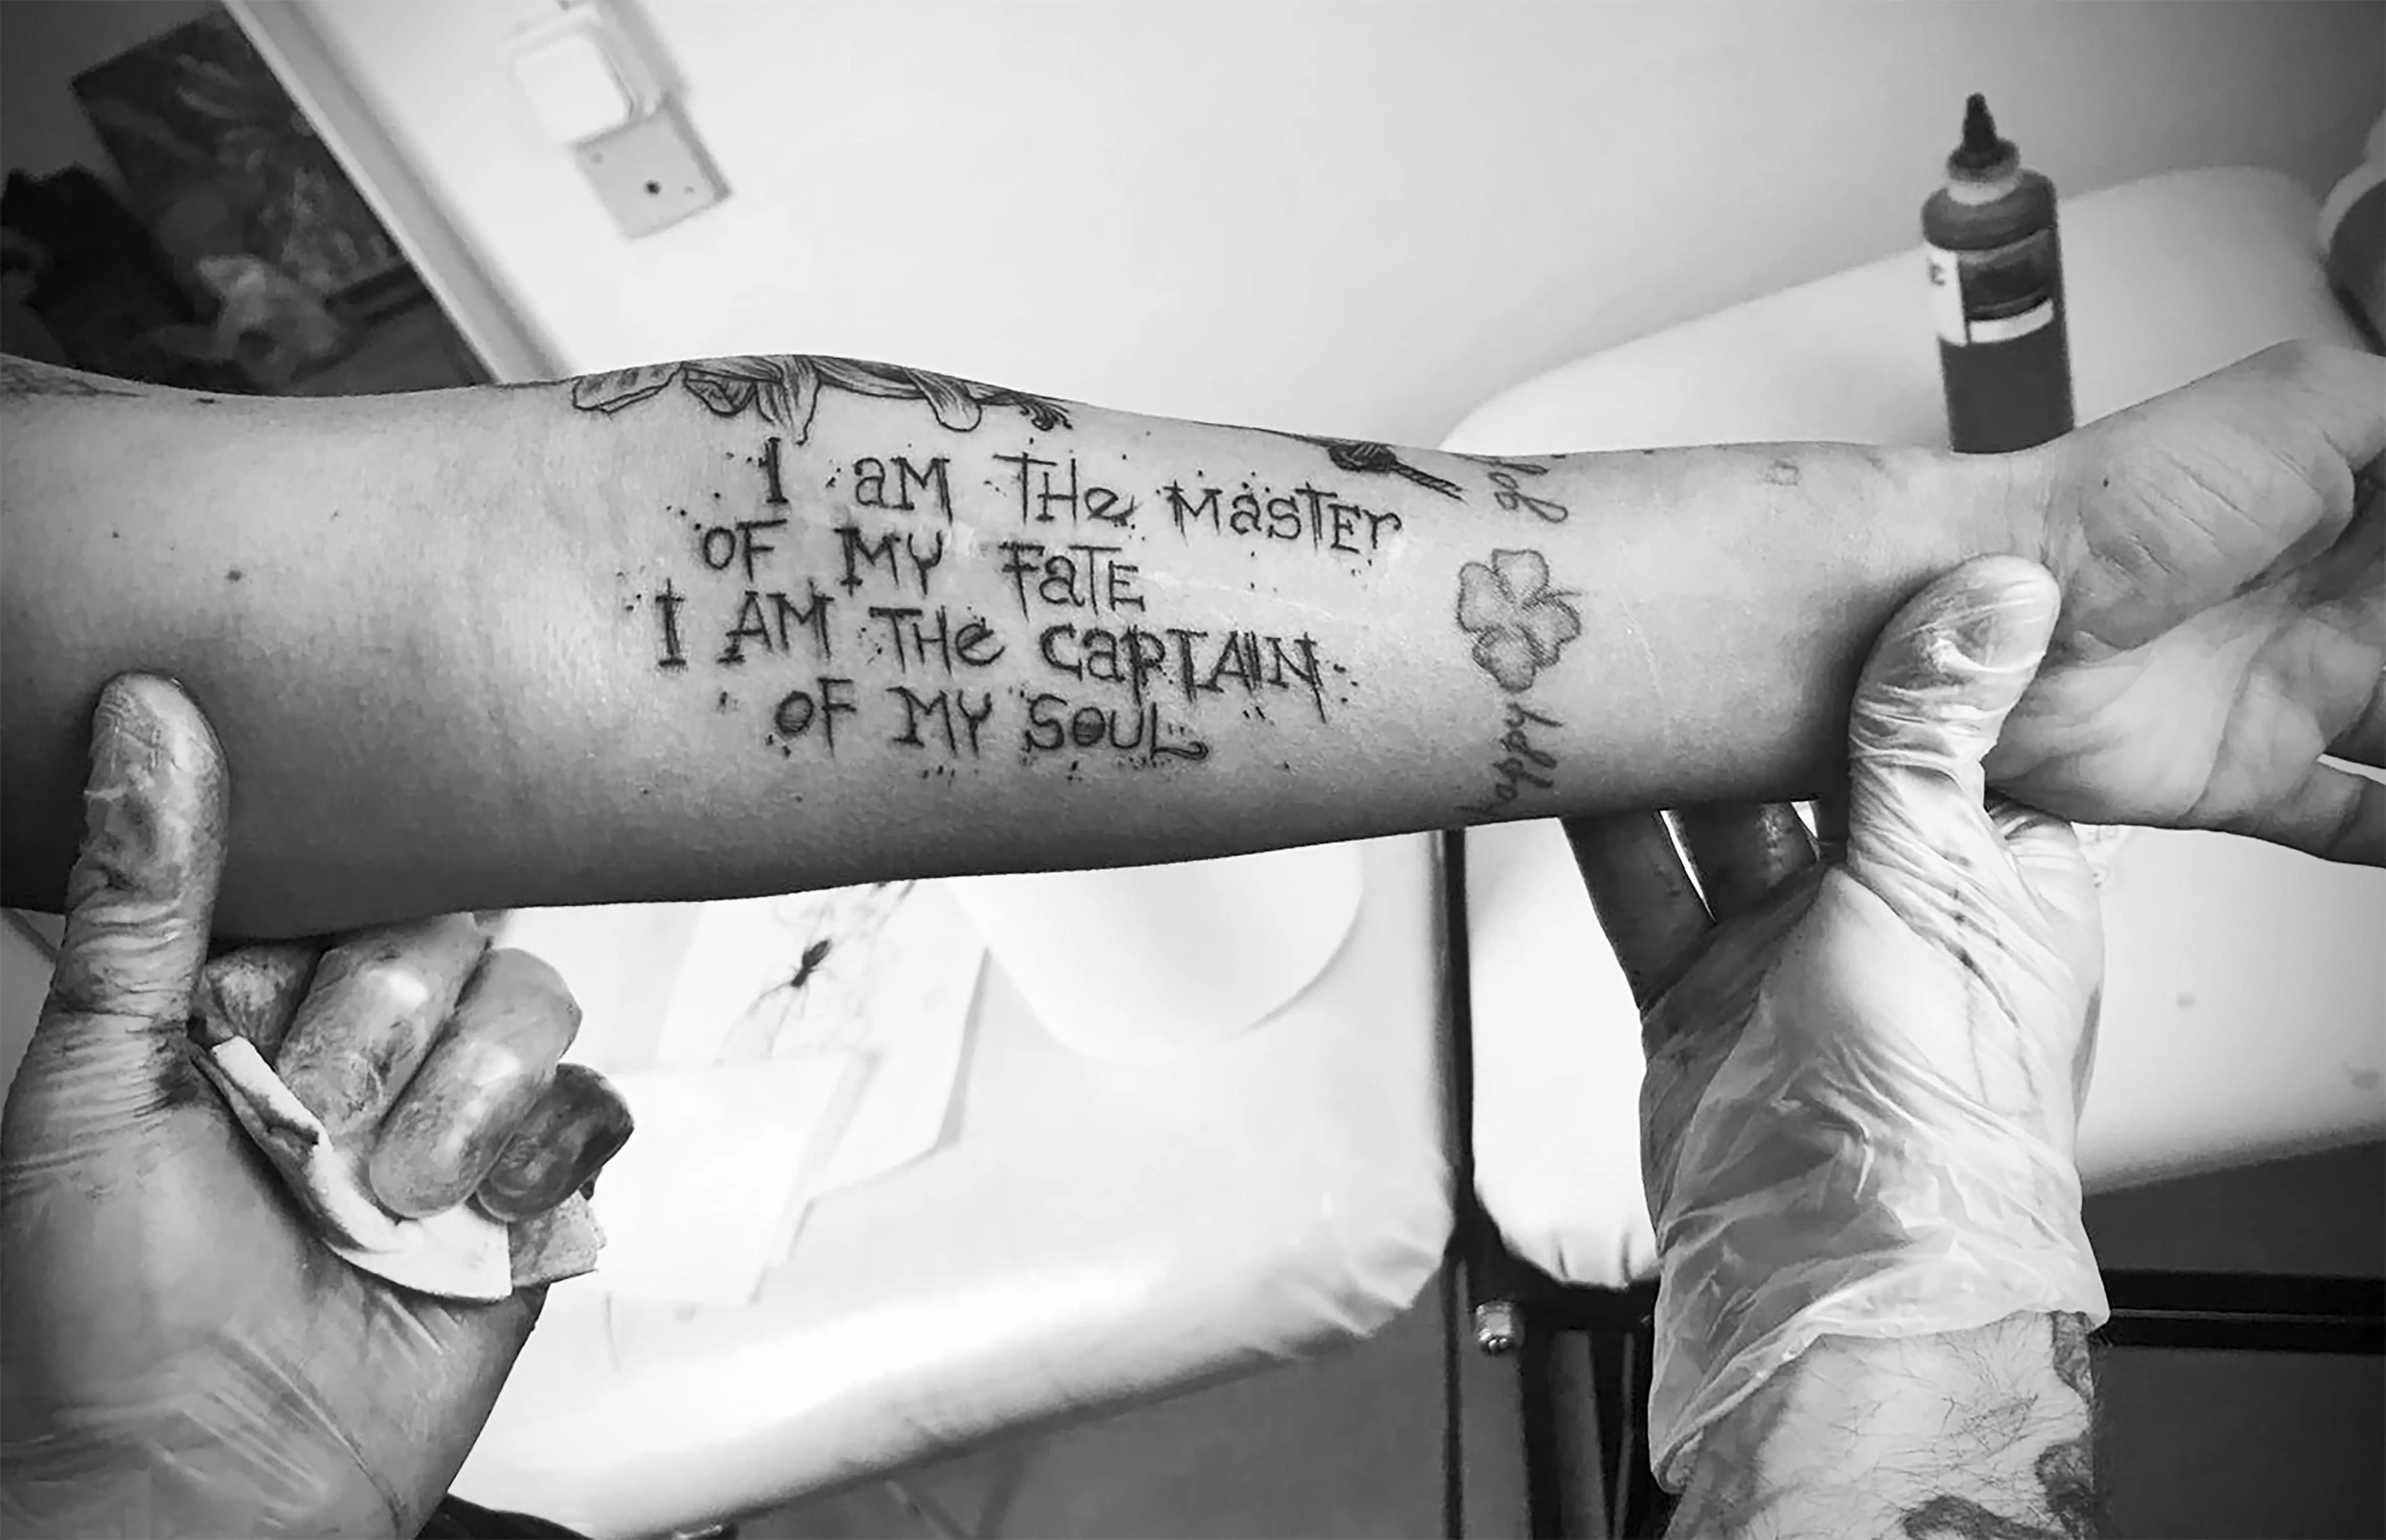 I aM THe MasTEr
OF MY FaTE
I AM THe CaPTAIN
OF MY SOUL
happy